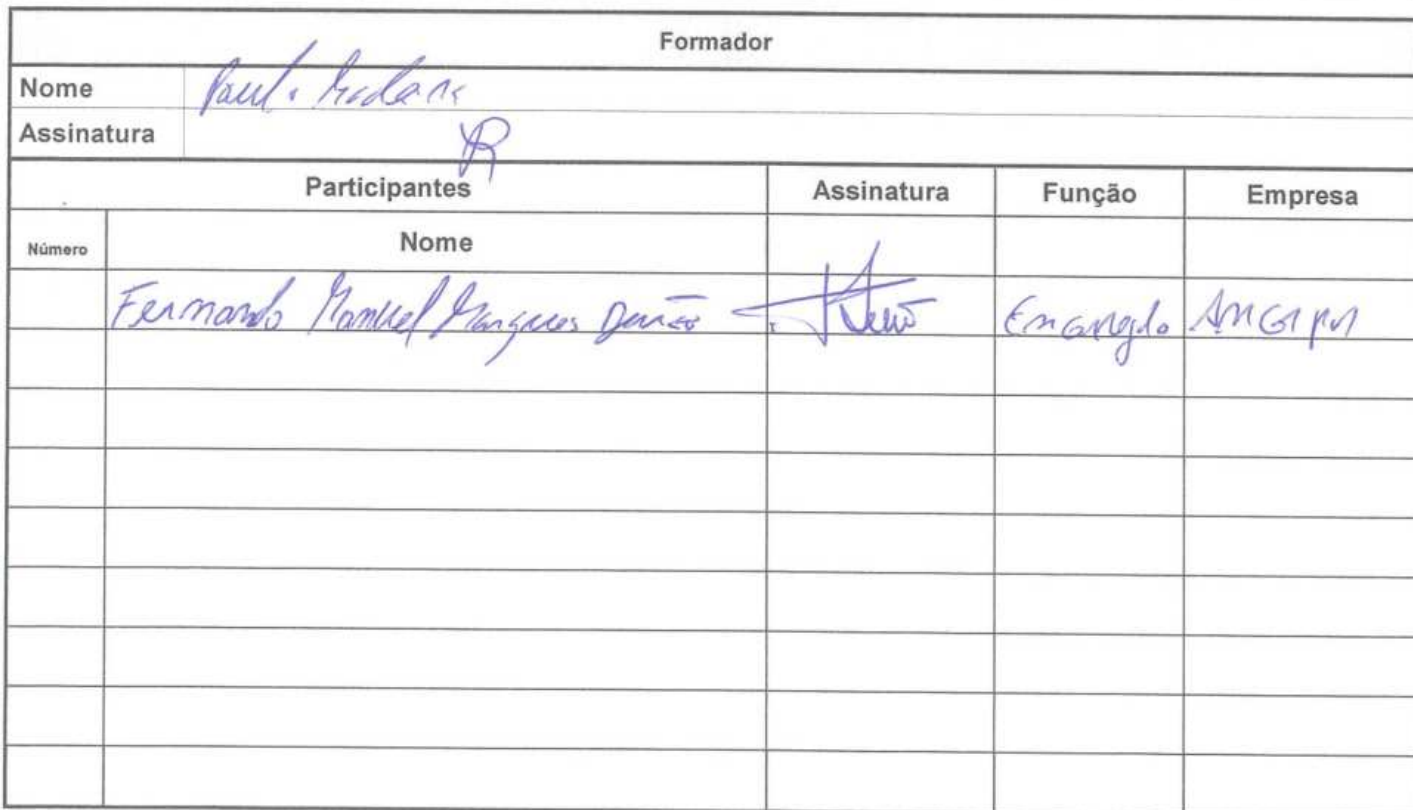 Formador
Nome
Assinatura
Participantes Assinatura Função Empresa
Número Nome
Fernando Manuel Marques